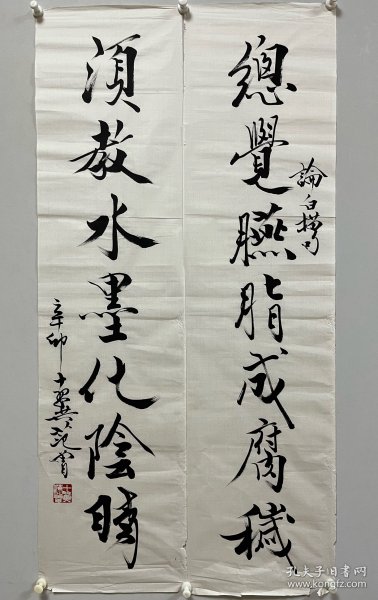 總覺臙脂成腐穢
論白描句
須教水墨化陰晴
辛卯十翼范曾
孔夫子旧书网